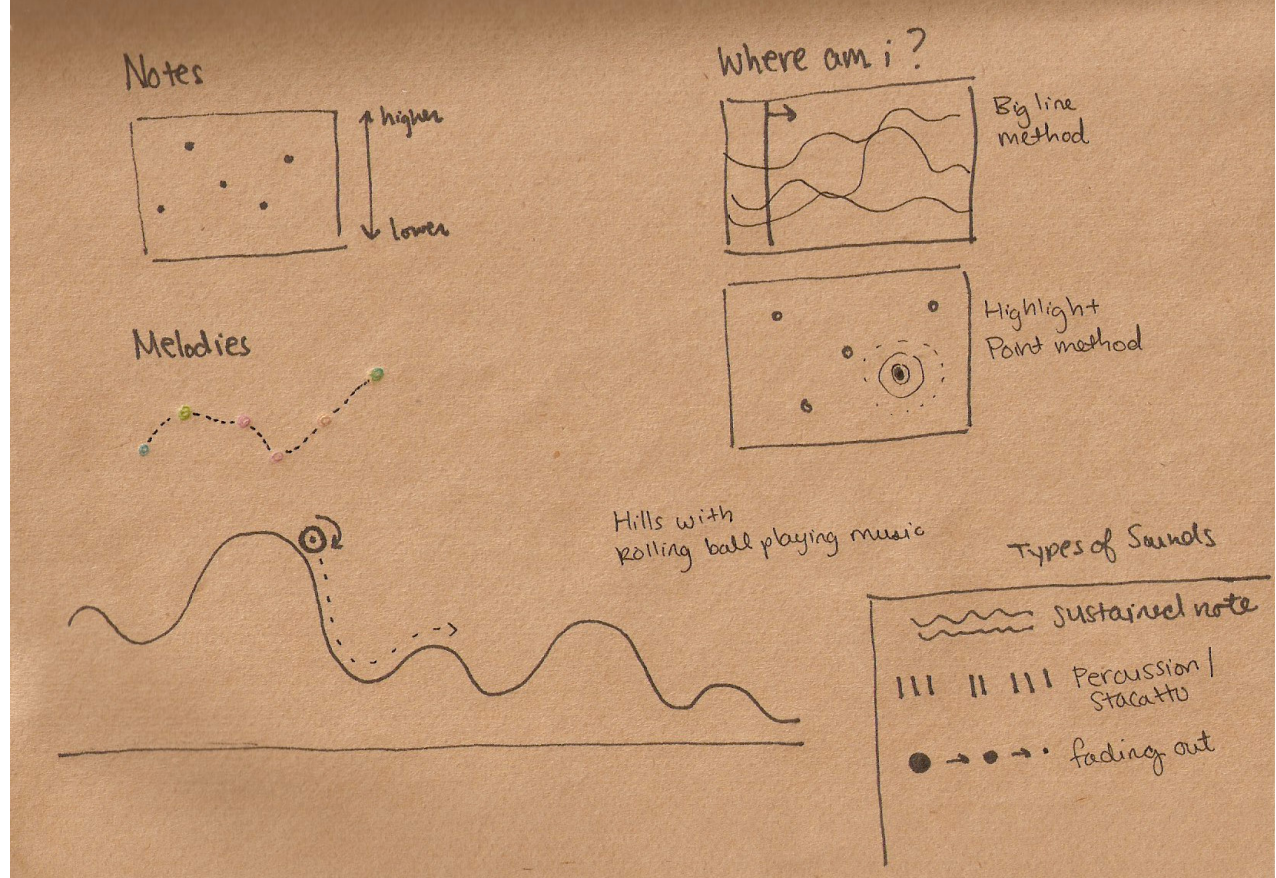 Notes
higher
lower
Melodies
Where am i?
Big line
method
Highlight
Point method
Hills with
rolling ball playing music
Types of Sounds
sustained note
Percussion/
Stacatto
fading out